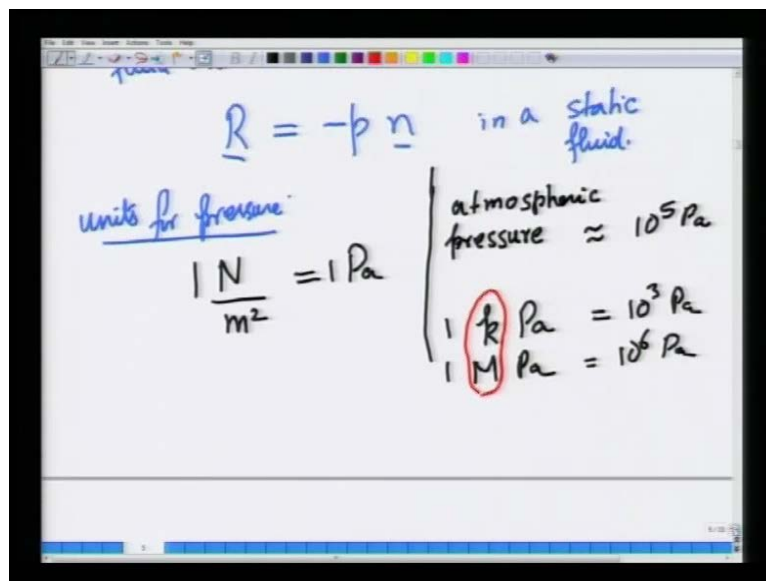 File Edit View Insert Actions Tools Help
R = -p n in a static
fluid.
units for pressure
1 N/m² = 1 Pa
atmospheric
pressure ≈ 10⁵ Pa
1 k Pa = 10³ Pa
1 M Pa = 10⁶ Pa